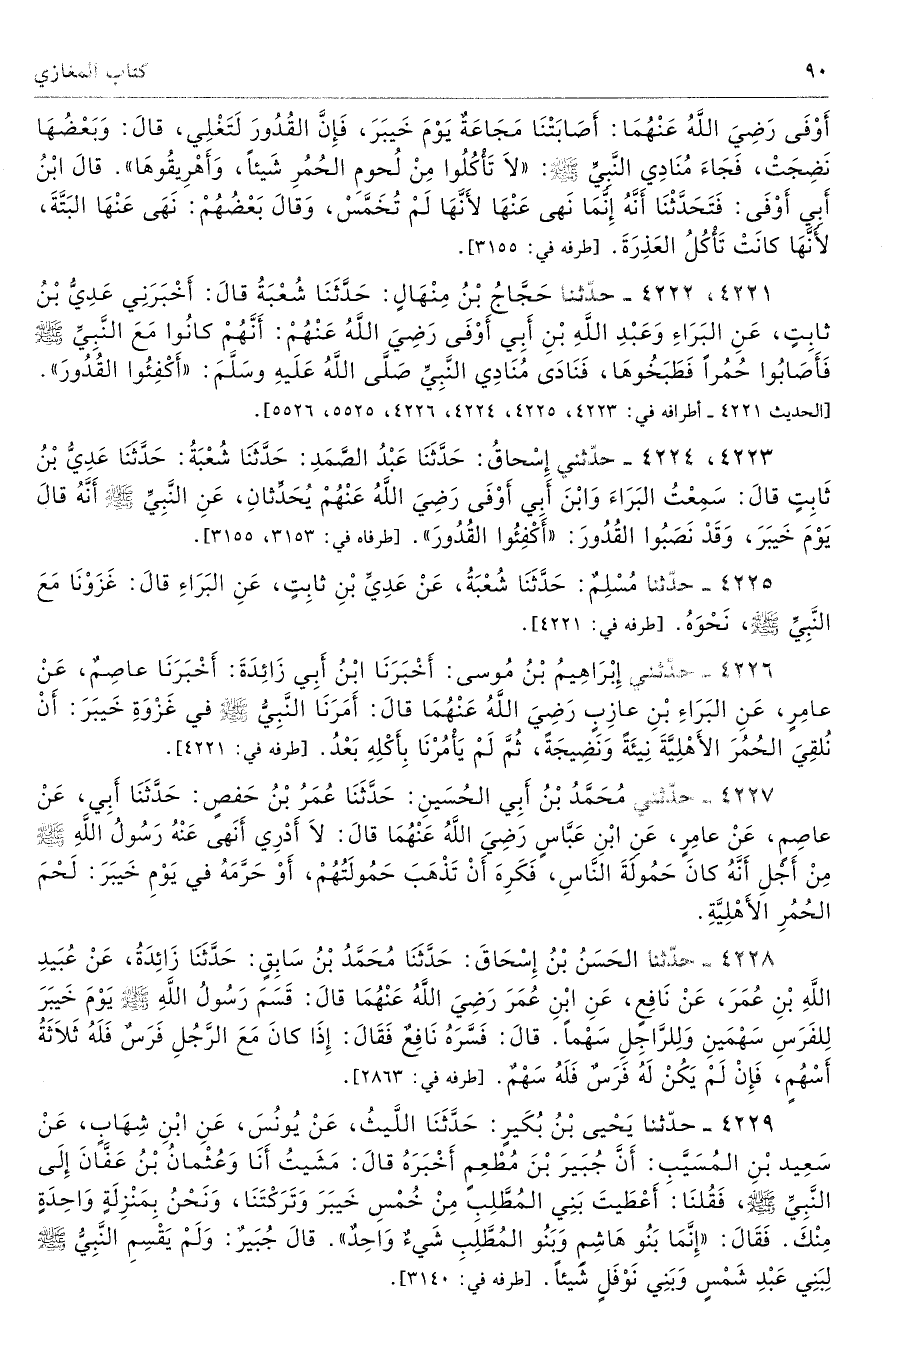 ٩٠ كتاب المغازي
أَوْفَى رَضِيَ اللَّهُ عَنْهُمَا: أَصَابَتْنَا مَجَاعَةٌ يَوْمَ خَيبَرَ، فَإِنَّ القُدُورَ لَتَغْلِي، قالَ: وَبَعْضُهَا
نَضِجَتْ، فَجَاءَ مُنَادِي النَّبِيِّ ﷺ: «لاَ تَأْكُلُوا مِنْ لُحومِ الحُمُرِ شَيئاً، وَأَهْرِيقُوهَا». قالَ ابْنُ
أَبِي أَوْفَى: فَتَحَدَّثْنَا أَنَّهُ إِنَّمَا نَهى عَنْهَا لأَنَّهَا لَمْ تُخَمَّسْ، وَقالَ بَعْضُهُمْ: نَهَى عَنْهَا البَتَّةَ،
لأَنَّهَا كانَتْ تَأْكُلُ العَذِرَةَ. [طرفه في: ٣١٥٥].
٤٢٢١، ٤٢٢٢ ـ حدّثنا حَجَّاجُ بْنُ مِنْهَالٍ: حَدَّثَنَا شُعْبَةُ قالَ: أَخْبَرَنِي عَدِيُّ بْنُ
ثابِتٍ، عَنِ البَرَاءِ وَعَبْدِ اللَّهِ بْنِ أَبِي أَوْفَى رَضِيَ اللَّهُ عَنْهُمْ: أَنَّهُمْ كانُوا مَعَ النَّبِيِّ ﷺ
فَأَصَابُوا حُمُراً فَطَبَخُوهَا، فَنَادَى مُنَادِي النَّبِيِّ صَلَّى اللَّهُ عَلَيهِ وسَلَّمَ: «أَكْفِئُوا القُدُورَ».
[الحديث ٤٢٢١ ـ أطرافه في: ٤٢٢٣، ٤٢٢٥، ٤٢٢٤، ٤٢٢٦، ٥٥٢٥، ٥٥٢٦].
٤٢٢٣، ٤٢٢٤ ـ حدّثني إِسْحاقُ: حَدَّثَنَا عَبْدُ الصَّمَدِ: حَدَّثَنَا شُعْبَةُ: حَدَّثَنَا عَدِيُّ بْنُ
ثَابِتٍ قالَ: سَمِعْتُ البَرَاءَ وَابْنَ أَبِي أَوْفَى رَضِيَ اللَّهُ عَنْهُمْ يُحَدِّثَانِ، عَنِ النَّبِيِّ ﷺ أَنَّهُ قالَ
يَوْمَ خَيبَرَ، وَقَدْ نَصَبُوا القُدُورَ: «أَكْفِئُوا القُدُورَ». [طرفاه في: ٣١٥٣، ٣١٥٥].
٤٢٢٥ ـ حدّثنا مُسْلِمٌ: حَدَّثَنَا شُعْبَةُ، عَنْ عَدِيِّ بْنِ ثابِتٍ، عَنِ البَرَاءِ قالَ: غَزَوْنَا مَعَ
النَّبِيِّ ﷺ، نَحْوَهُ. [طرفه في: ٤٢٢١].
٤٢٢٦ ـ حدّثني إِبْرَاهِيمُ بْنُ مُوسى: أَخْبَرَنَا ابْنُ أَبِي زَائِدَةَ: أَخْبَرَنَا عاصِمٌ، عَنْ
عامِرٍ، عَنِ البَرَاءِ بْنِ عازِبٍ رَضِيَ اللَّهُ عَنْهُمَا قالَ: أَمَرَنَا النَّبِيُّ ﷺ في غَزْوَةِ خَيبَرَ: أَنْ
نُلقِيَ الحُمُرَ الأَهْلِيَّةَ نِيئَةً وَنَضِيجَةً، ثُمَّ لَمْ يَأْمُرْنَا بِأَكْلِهِ بَعْدُ. [طرفه في: ٤٢٢١].
٤٢٢٧ ـ حدّثني مُحَمَّدُ بْنُ أَبِي الحُسَينِ: حَدَّثَنَا عُمَرُ بْنُ حَفصٍ: حَدَّثَنَا أَبِي، عَنْ
عاصِمٍ، عَنْ عامِرٍ، عَنِ ابْنِ عَبَّاسٍ رَضِيَ اللَّهُ عَنْهُمَا قالَ: لاَ أَدْرِي أَنَهى عَنْهُ رَسُولُ اللَّهِ ﷺ
مِنْ أَجْلِ أَنَّهُ كانَ حَمُولَةَ النَّاسِ، فَكَرِهَ أَنْ تَذْهَبَ حَمُولَتُهُمْ، أَوْ حَرَّمَهُ في يَوْمِ خَيبَرَ: لَحْمَ
الحُمُرِ الأَهْلِيَّةِ.
٤٢٢٨ ـ حدّثنا الحَسَنُ بْنُ إِسْحَاقَ: حَدَّثَنَا مُحَمَّدُ بْنُ سَابِقٍ: حَدَّثَنَا زَائِدَةُ، عَنْ عُبَيدِ
اللَّهِ بْنِ عُمَرَ، عَنْ نَافِعٍ، عَنِ ابْنِ عُمَرَ رَضِيَ اللَّهُ عَنْهُمَا قالَ: قَسَمَ رَسُولُ اللَّهِ ﷺ يَوْمَ خَيبَرَ
لِلفَرَسِ سَهْمَينِ وَلِلرَّاجِلِ سَهْماً. قالَ: فَسَّرَهُ نَافِعٌ فَقَالَ: إِذَا كانَ مَعَ الرَّجُلِ فَرَسٌ فَلَهُ ثَلاَثَةُ
أَسْهُمٍ، فَإِنْ لَمْ يَكُنْ لَهُ فَرَسٌ فَلَهُ سَهْمٌ. [طرفه في: ٢٨٦٣].
٤٢٢٩ ـ حدّثنا يَحْيى بْنُ بُكَيرٍ: حَدَّثَنَا اللَّيثُ، عَنْ يُونُسَ، عَنِ ابْنِ شِهَابٍ، عَنْ
سَعِيدِ بْنِ المُسَيَّبِ: أَنَّ جُبَيرَ بْنَ مُطْعِمٍ أَخْبَرَهُ قالَ: مَشَيتُ أَنَا وَعُثْمانُ بْنُ عَفَّانَ إِلَى
النَّبِيِّ ﷺ، فَقُلنَا: أَعْطَيتَ بَنِي المُطَّلِبِ مِنْ خُمْسِ خَيبَرَ وَتَرَكْتَنَا، وَنَحْنُ بِمَنْزِلَةٍ وَاحِدَةٍ
مِنْكَ. فَقَالَ: «إِنَّمَا بَنُو هَاشِمٍ وَبَنُو المُطَّلِبِ شَيءٌ وَاحِدٌ». قالَ جُبَيرٌ: وَلَمْ يَقْسِمِ النَّبِيُّ ﷺ
لِبَنِي عَبْدِ شَمْسٍ وَبَنِي نَوْفَلٍ شَيئاً. [طرفه في: ٣١٤٠].